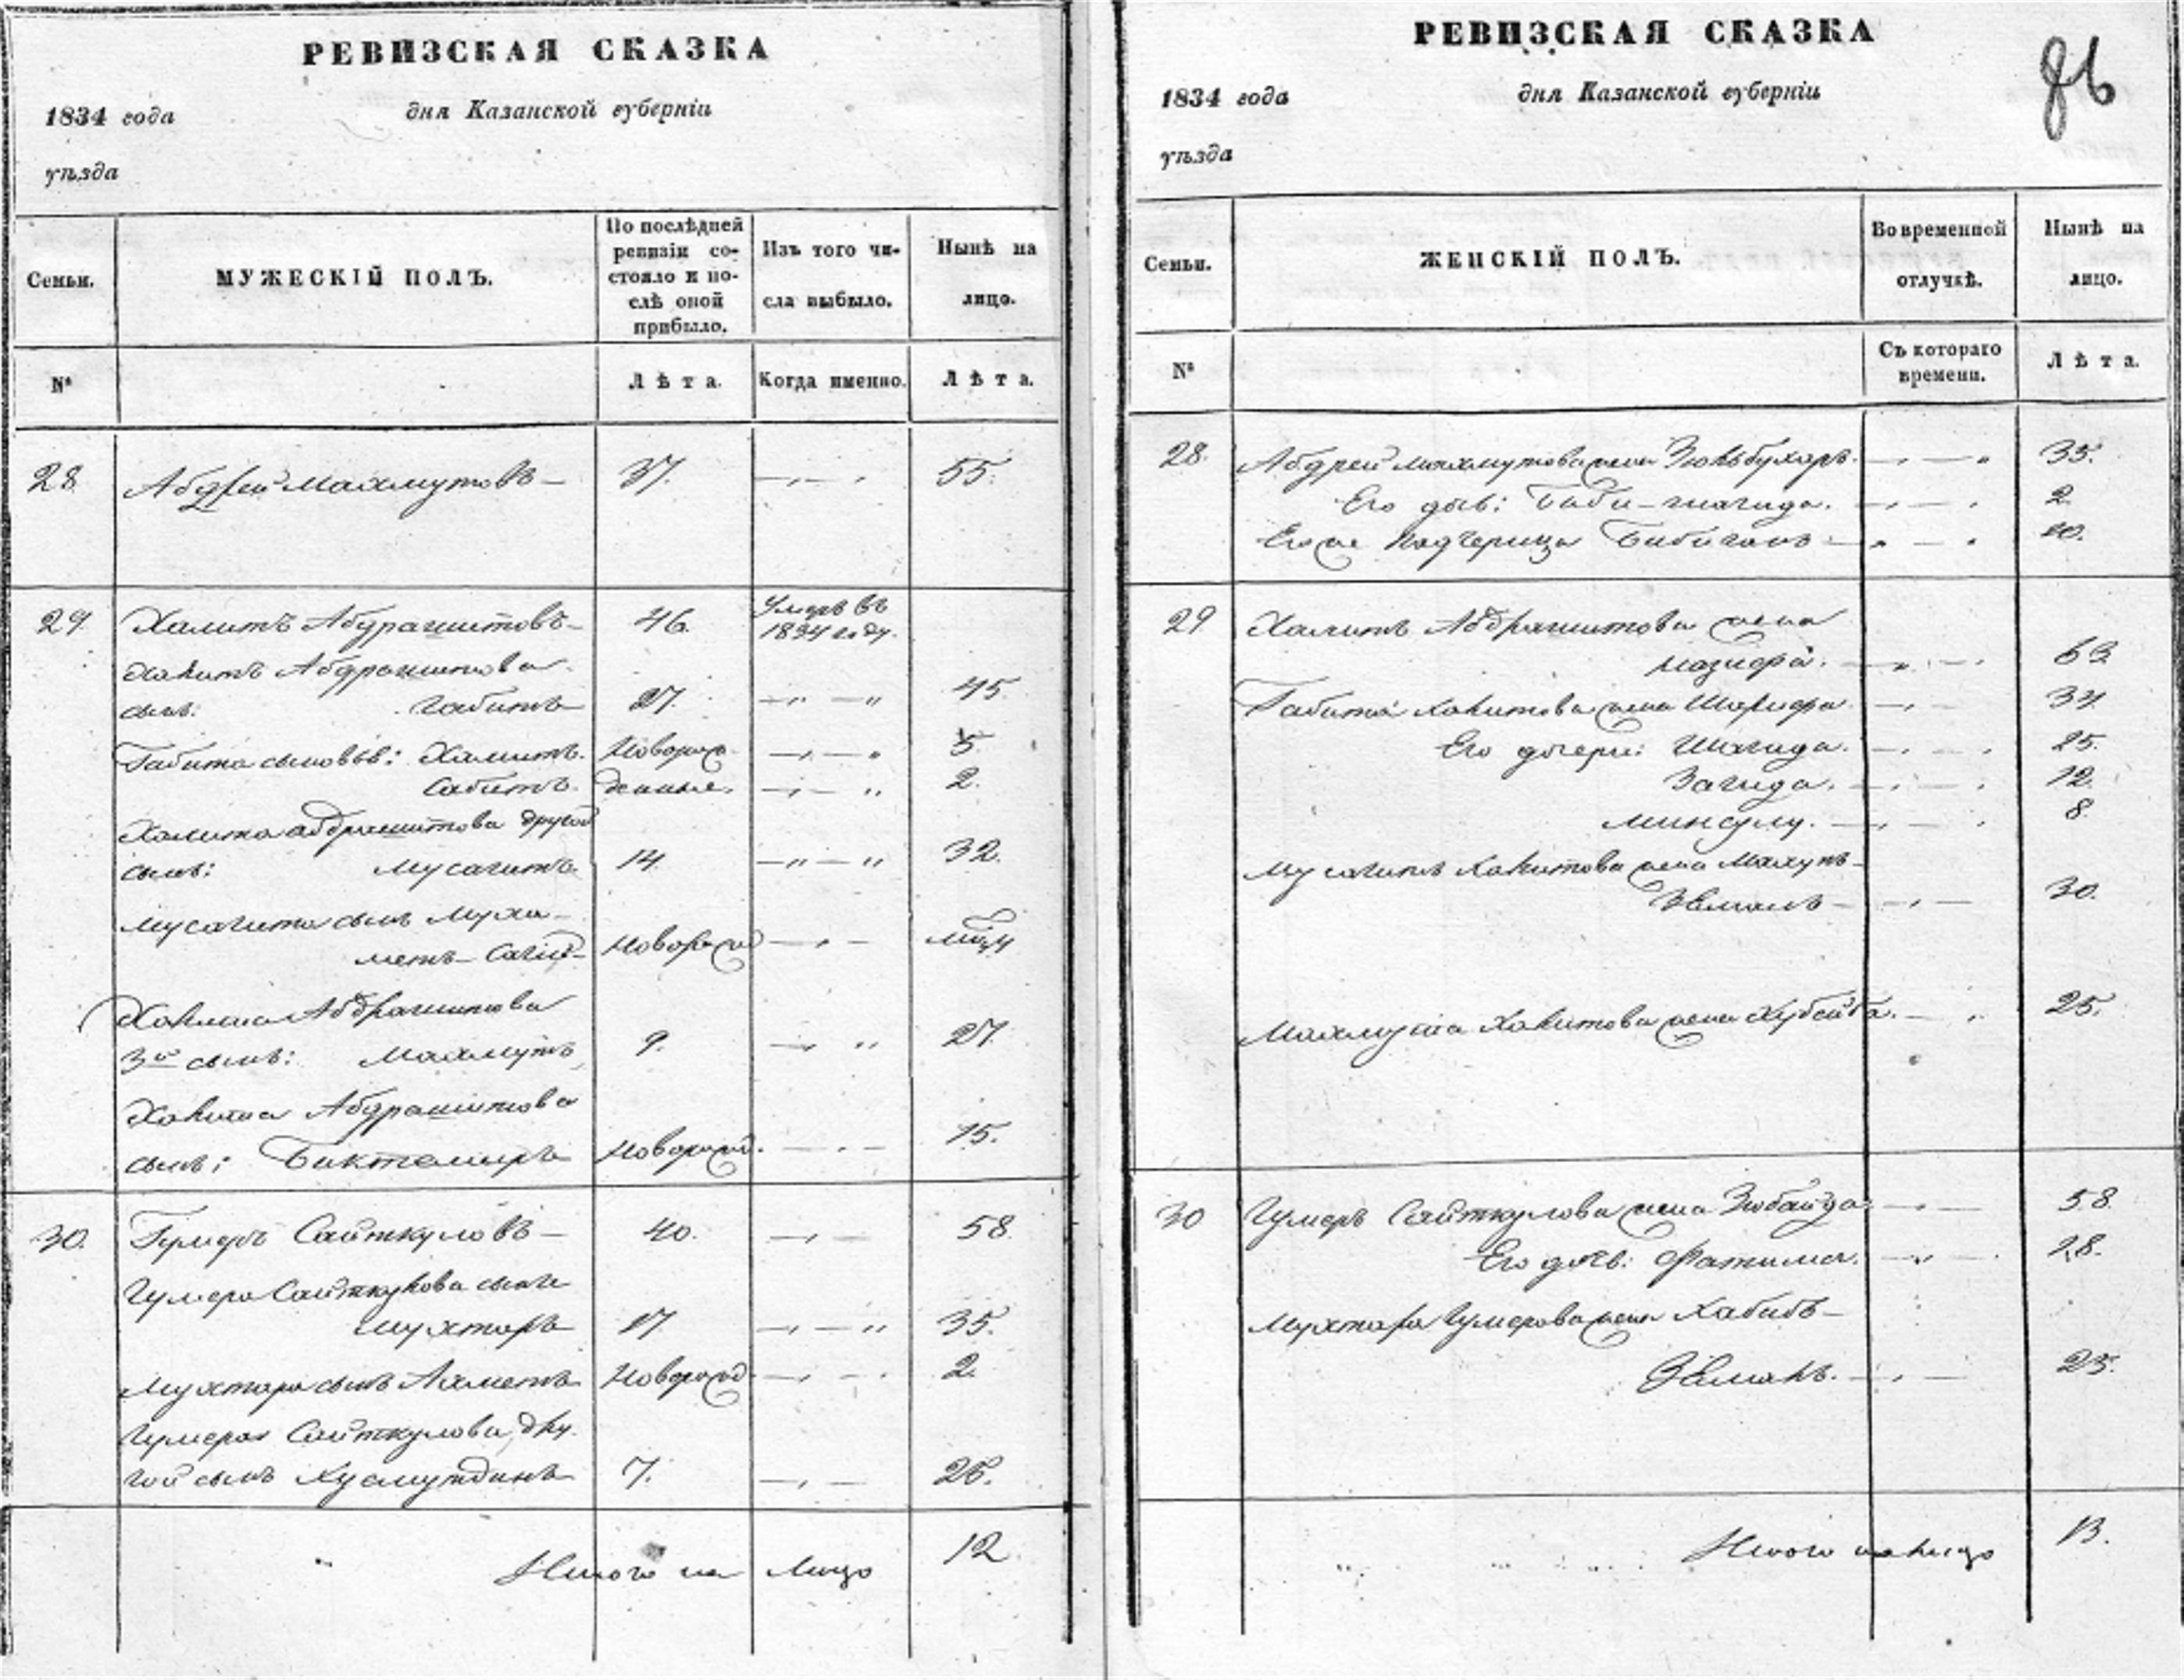 РЕВИЗСКАЯ СКАЗКА
1834 года дня Казанской губерніи
уѣзда
Семьи.
МУЖЕСКІЙ ПОЛЪ.
По послѣдней
ревизіи со-
стояло и по-
слѣ оной
прибыло.
Изъ того чи-
сла выбыло.
Нынѣ на
лицо.
№
Лѣта.
Когда именно.
Лѣта.
28 Абдрей Махмутовъ — 37. 55.
29 Халитъ Абдрашитовъ — 46. Умеръ въ
1834 году.
Халитъ Абдрашитова
сынъ: Габитъ 27. 45
Габита сыновья: Халитъ. Новорож- 5
Сабитъ. денные. 2.
Халита Абдрашитова другой
сынъ: Мусагитъ 14. 32.
Мусагита сынъ Муха-
метъ-Сагит- Новорож
Халита Абдрашитова
3й сынъ: Махмутъ, 9. 27.
Халита Абдрашитова
сынъ: БиктемиръНоворож. 15.
30. Гумеръ Сайткуловъ — 40. 58
Гумера Сайткулова сынъ
Мухтаръ 17 35.
Мухтара сынъ Ахметъ Новорож 2.
Гумера Сайткулова дру-
гой сынъ Хусмутдинъ 7. 25.
Итого на лицо 12
РЕВИЗСКАЯ СКАЗКА
86
1834 года дня Казанской губерніи
уѣзда
Семьи.
ЖЕНСКІЙ ПОЛЪ.
Во временной
отлучкѣ.
Нынѣ на
лицо.
№
Съ котораго
времени.
Лѣта.
28. Абдрей Махмутова жена Зюльбухаръ. 35.
Его дочь: Биби-шагида. 2
Его же Падчерица Бибиганъ 10.
29 Халитъ Абдрашитова жена
Назифа. 63
Габита Халитова жена Шарифа 34
Его дочери: Шагида. 15.
Загида. 12.
Минсулу. 8
Мусагитъ Халитова жена Махуп-
Земаль 30.
Махмута Халитова жена Хубейба. 25.
30 Гумеръ Сайткулова жена Зюбайда 58
Его дочь: Фатима. 18.
Мухтара Гумерова жена Хабиб-
Земаль. 23.
Итого на лицо 13.